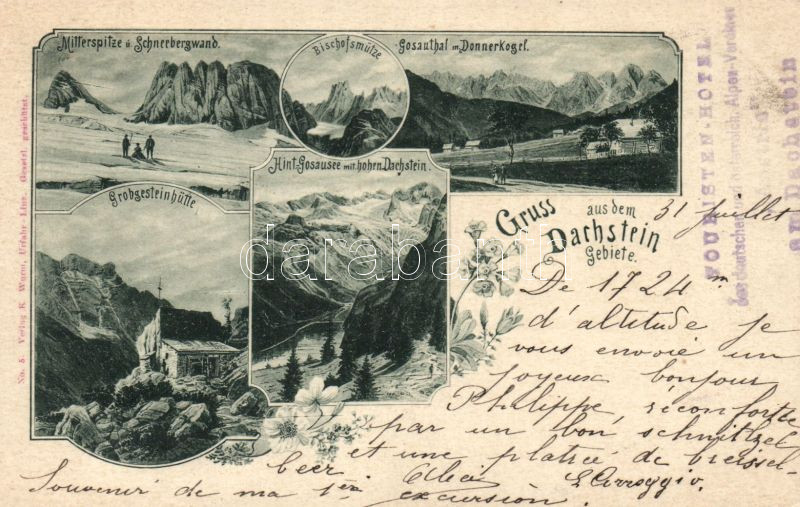 Mitterspitze u Schneebergwand.
Bischofsmütze
Gosauthal m. Donnerkogel.
Hint. Gosausee mit hohen Dachstein.
Grobgesteinhütte
Gruss
aus dem
Dachstein
Gebiete.
No. 5. Verlag K. Wurm, Urfahr-Linz. Gesetzl. geschützt.
TOURISTEN-HOTEL
Alpen-Vereines
Dachstein
darabanth
31 Juillet
De 1724 m
d'altitude je
vous envoie un
joyeux bonjour
Philippe, réconforté
par un bon schnitzel
et une platrée de Preissel-
beer
Souvenir de ma 1ère
excursion.